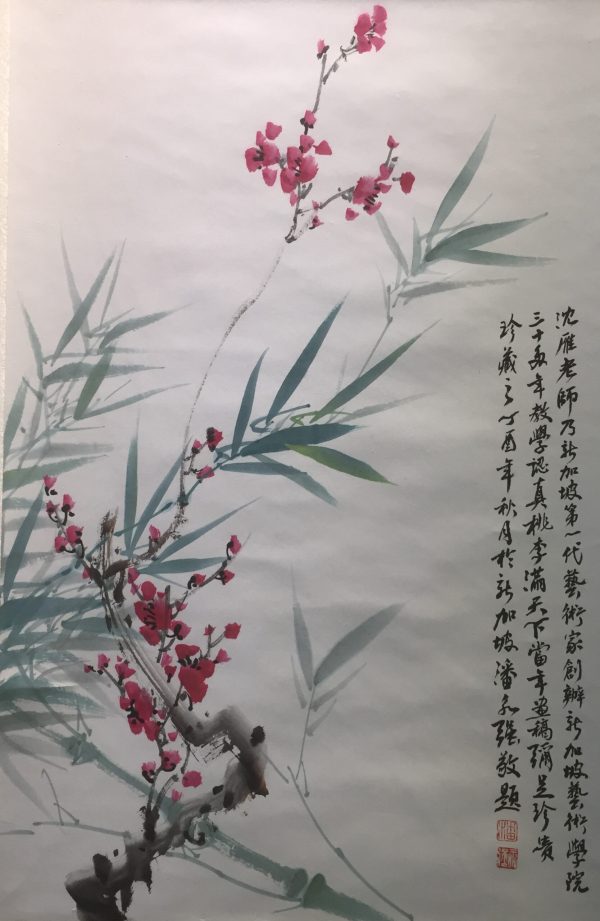 沈雁老師乃新加坡第一代藝術家創辦新加坡藝術學院
三十多年教學認真桃李滿天下當年畫稿彌足珍貴
珍藏之丁酉年秋月於新加坡潘永强敬題